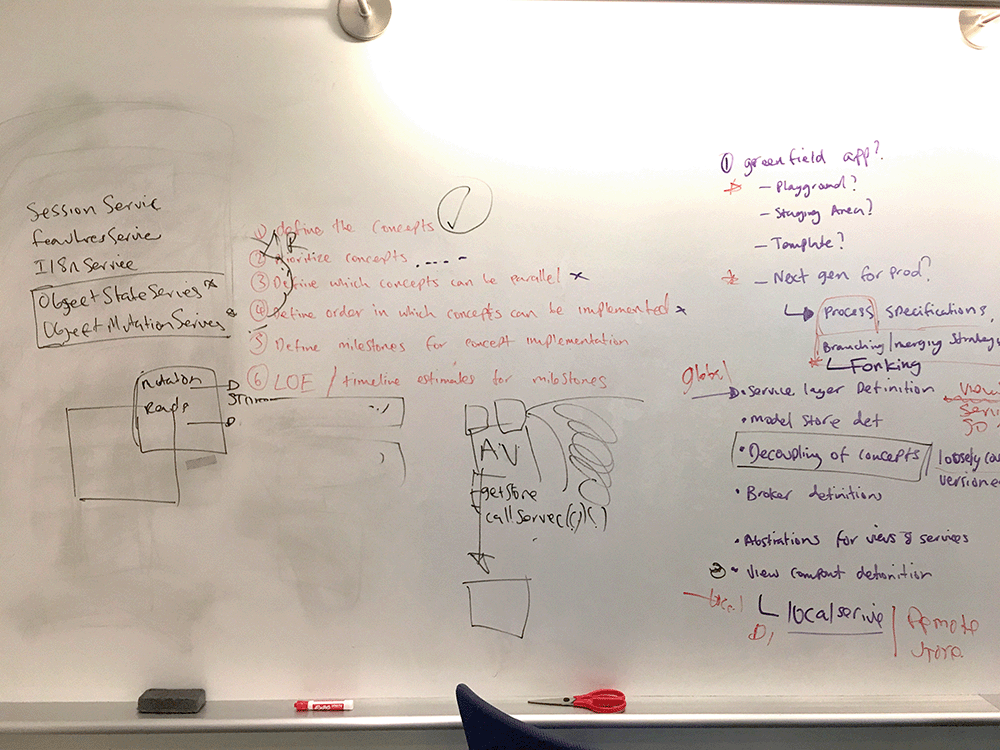 Session Servie
Features Servie
I18n Service
Object State Serives
Object Mutation Serives
mutation
Reads
① define the concepts
② Prioritize concepts
③ Define which concepts can be parallel
④ Define order in which concepts can be implemented
⑤ Define milestones for concept implementation
⑥ LOE / timeline estimates for milestones
AV
getStore
① greenfield app?
- Playground?
- Staging Area?
- Template?
- Next gen for prod?
Process specifications,
Branching/merging
Forking
global
• Service layer Definition
View
• model store def
• Decoupling of concepts
loosely
• Broker definitions
• Abstrations for views & services
• View compont defonition
local
localserive
Remote
store